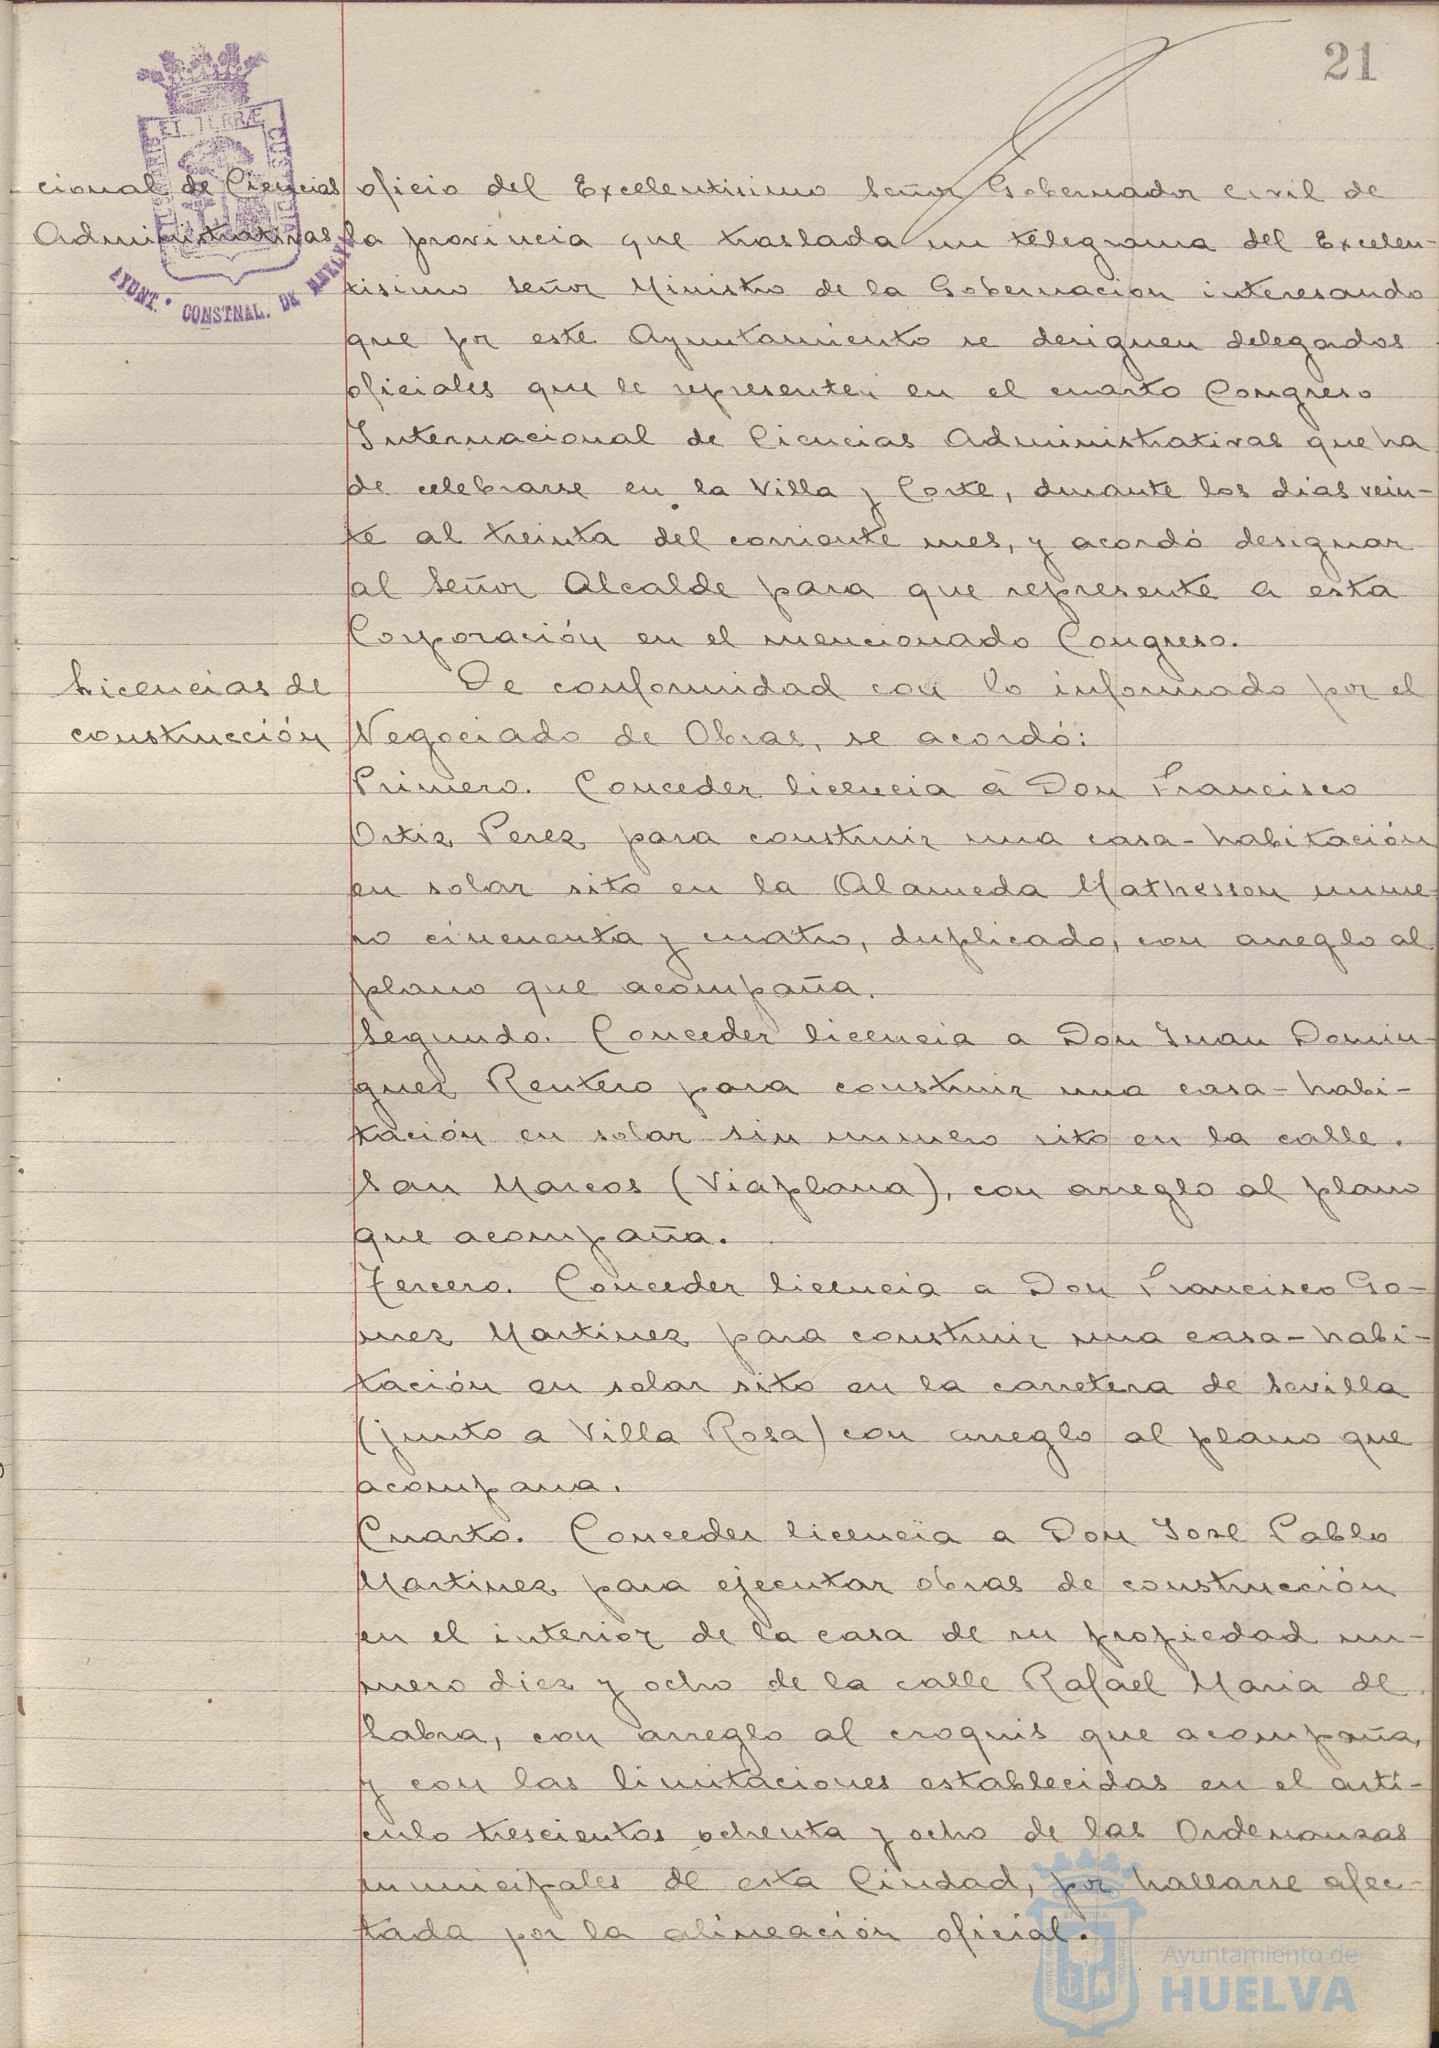 21
cional de Ciencias
Administrativas
AYUNT. CONSTNAL. DE HUELVA
oficio del Excelentisimo Señor Gobernador civil de
la provincia que traslada un telegrama del Excelen-
tisimo Señor Ministro de la Gobernación interesando
que por este Ayuntamiento se designen delegados
oficiales que le representen en el cuarto Congreso
Internacional de Ciencias Administrativas que ha
de celebrarse en la Villa y Corte, durante los dias vein-
te al treinta del corriente mes, y acordó designar
al Señor Alcalde para que represente a esta
Corporación en el mencionado Congreso.
Licencias de
construcción
De conformidad con lo informado por el
Negociado de Obras, se acordó:
Primero. Conceder licencia á Don Francisco
Ortiz Perez para construir una casa-habitación
en solar sito en la Alameda Mathesson nume-
ro cincuenta y cuatro, duplicado, con arreglo al
plano que acompaña.
Segundo. Conceder licencia a Don Juan Domin-
guez Rentero para construir una casa-habi-
tación en solar sin numero sito en la calle
San Marcos (Viaplana), con arreglo al plano
que acompaña.
Tercero. Conceder licencia a Don Francisco Go-
mez Martinez para construir una casa-habi-
tación en solar sito en la carretera de Sevilla
(junto a Villa Rosa) con arreglo al plano que
acompana.
Cuarto. Conceder licencia a Don José Pablo
Martinez para ejecutar obras de construcción
en el interior de la casa de su propiedad nu-
mero diez y ocho de la calle Rafael Maria de
Labra, con arreglo al croquis que acompaña,
y con las limitaciones establecidas en el artí-
culo trescientos ochenta y ocho de las Ordenanzas
municipales de esta Ciudad, por hallarse afec-
tada por la alineación oficial.
Ayuntamiento de
HUELVA